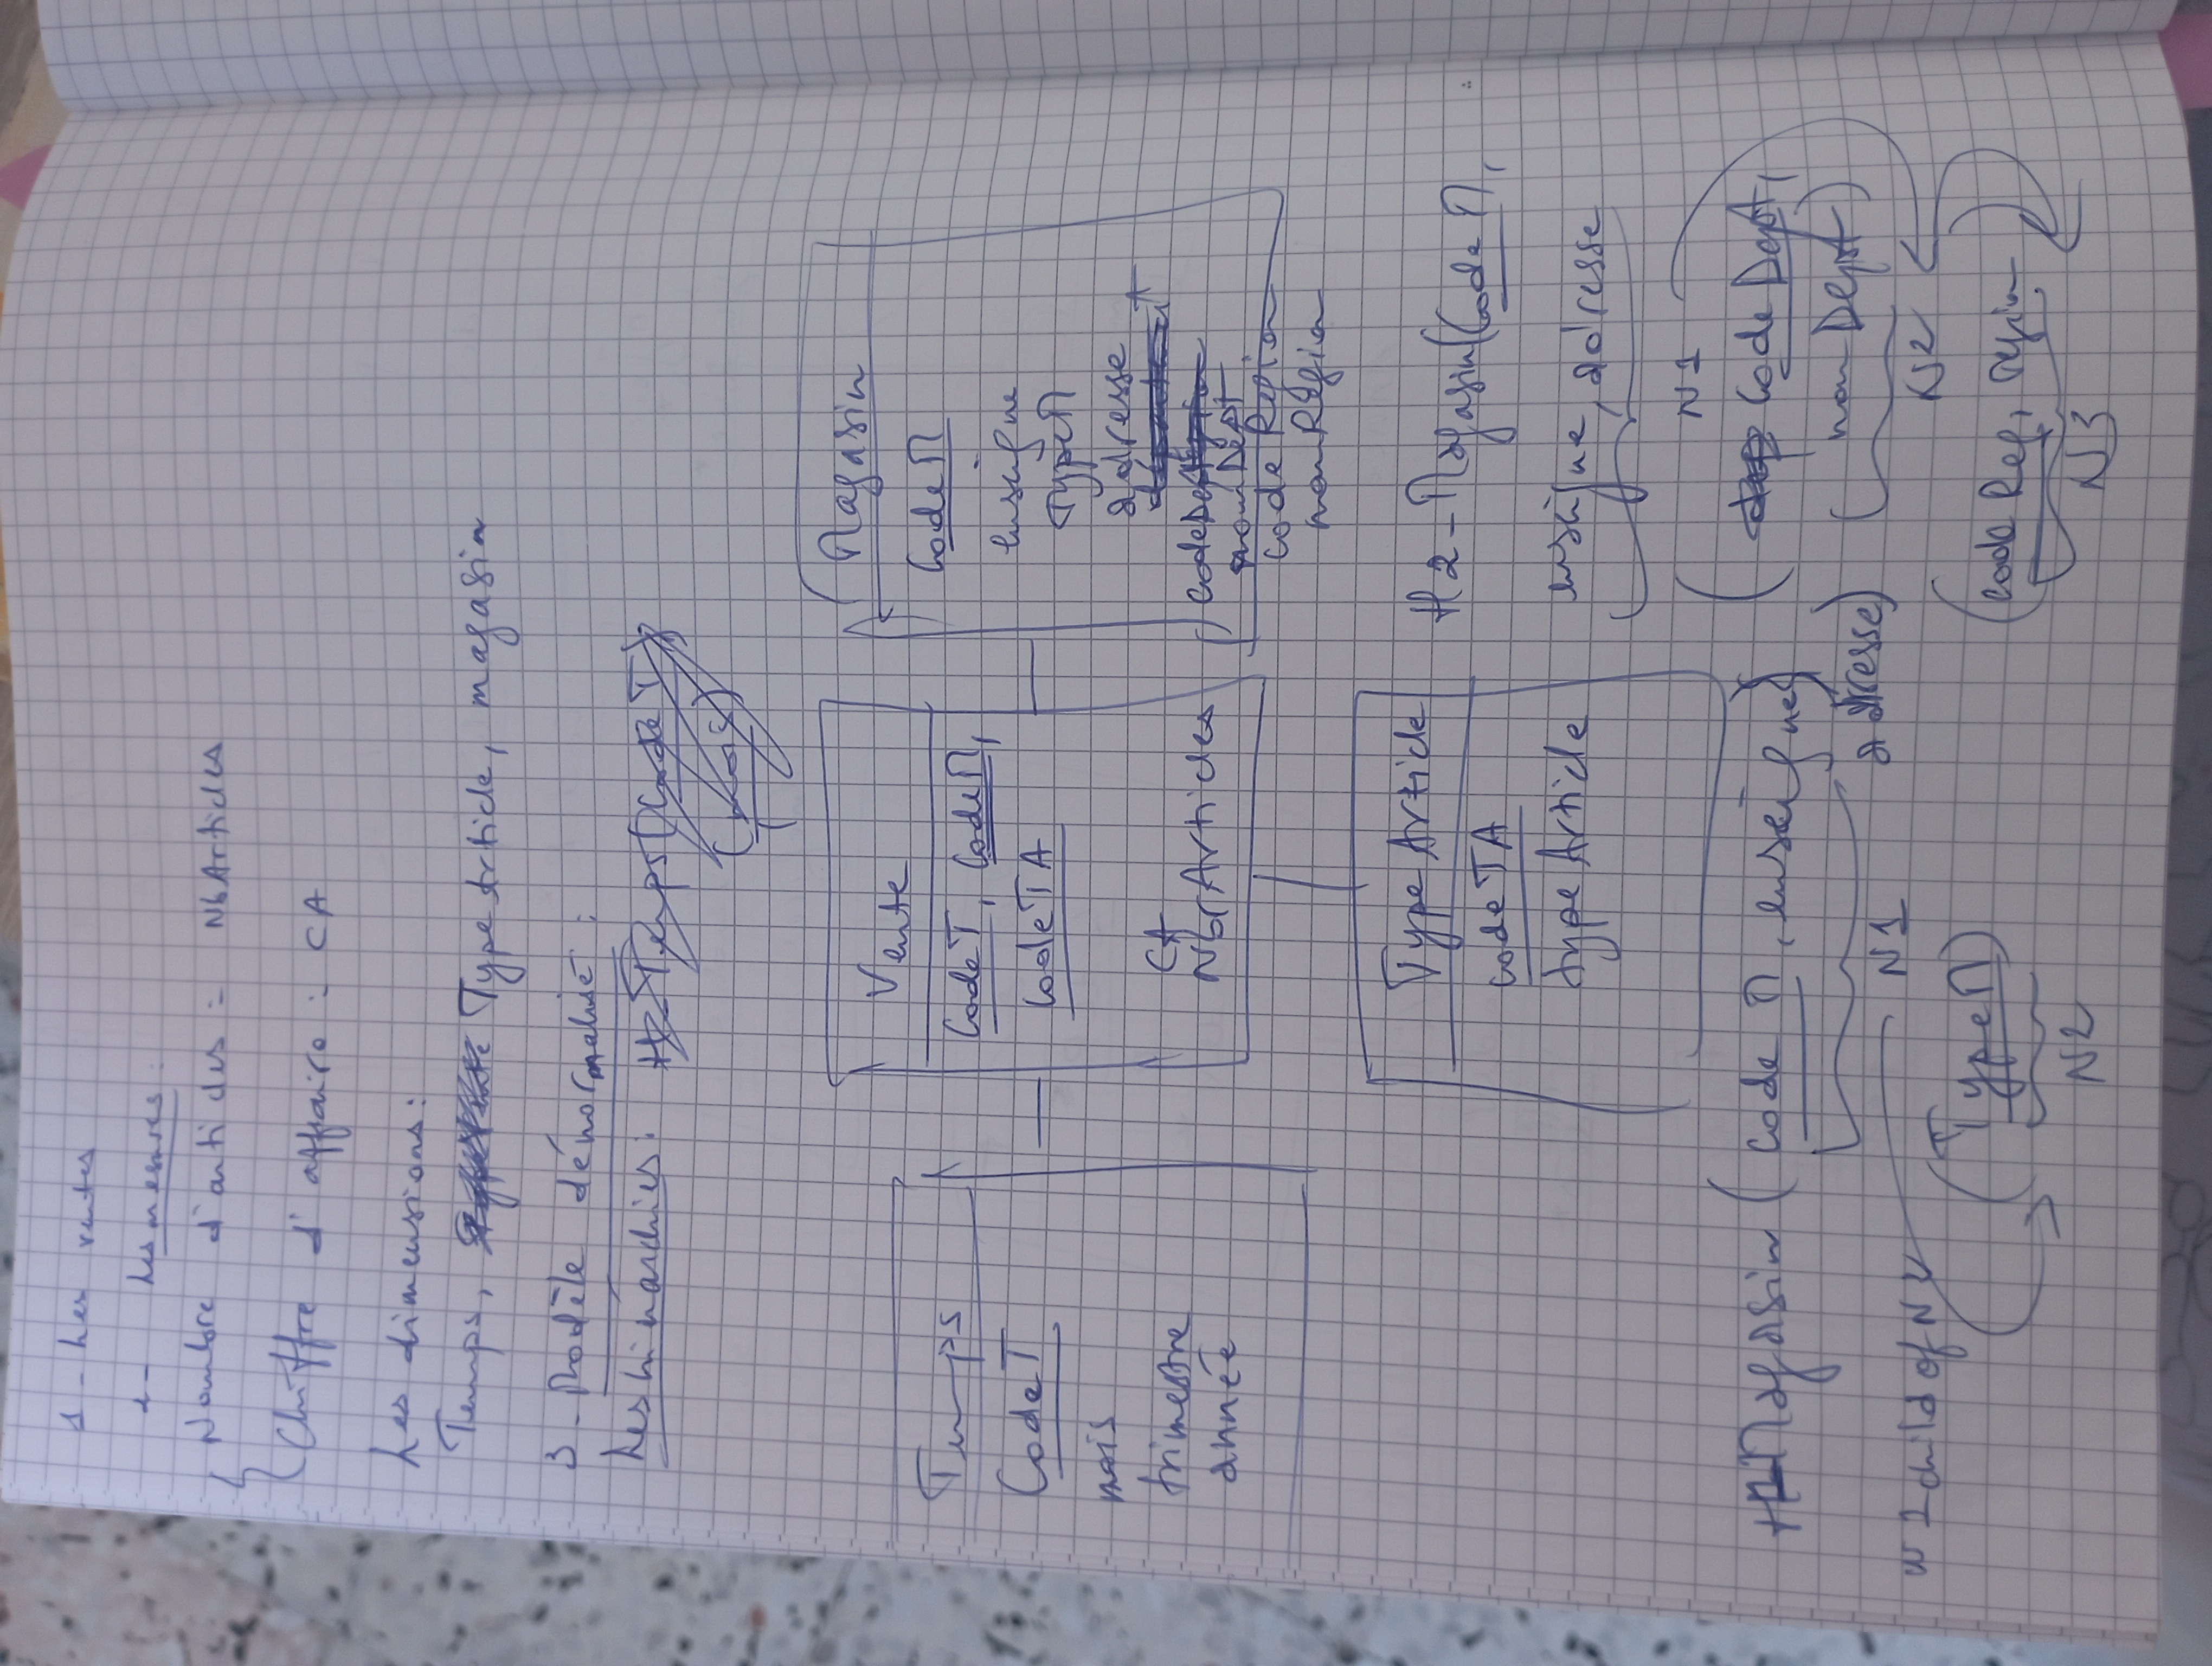 1 - Les ventes
2 - Les mesures :
Nombre d'articles = NbArticles
Chiffre d'affaire : CA
Les dimensions :
Temps, TypeArticle, magasin
3 - Modèle dénormalisé :
Les hiérarchies :
Temps
CodeT
mois
trimestre
année
Vente
CodeT, CodeM,
CodeTA
CA
NbrArticles
Magasin
CodeM
enseigne
TypeM
adresse
codeDept
nomDept
code Region
nomRegion
TypeArticle
codeTA
typeArticle
H2 - Magasin (Code M,
enseigne, adresse
N1
(Code Dept,
nom Dept)
N2
(code Reg, region)
N3
H1-Magasin (Code M, enseigne,
adresse)
N1
N1 child of N2
(TypeM)
N2